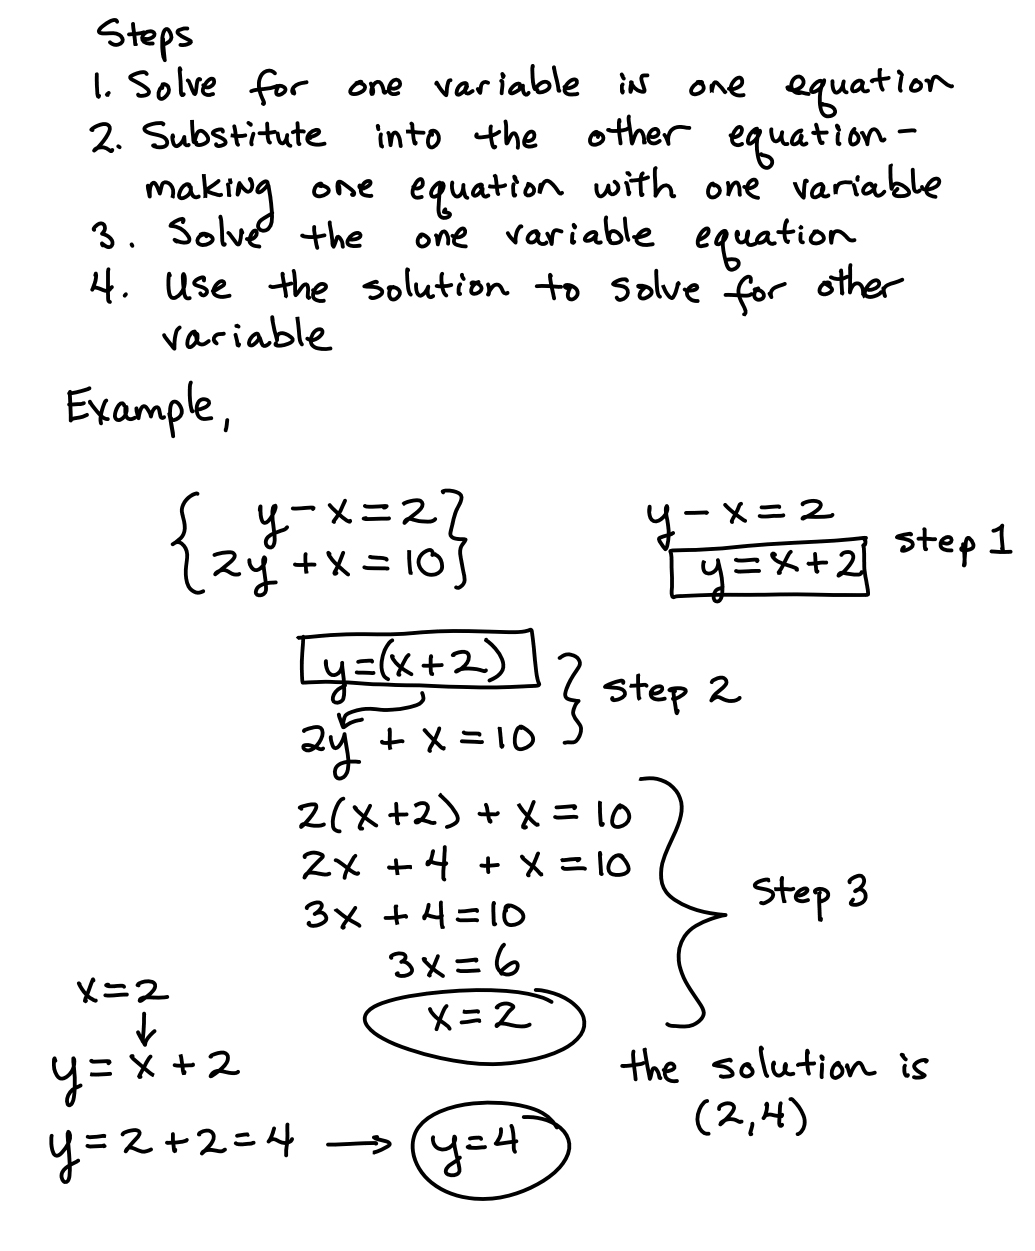 Steps
1. Solve for one variable in one equation
2. Substitute into the other equation -
making one equation with one variable
3. Solve the one variable equation
4. Use the solution to solve for other
variable
Example,
{ y - x = 2 }
{ 2y + x = 10 }
y - x = 2
y = x + 2
step 1
y = (x + 2)
2y + x = 10
step 2
2(x + 2) + x = 10
2x + 4 + x = 10
3x + 4 = 10
3x = 6
x = 2
Step 3
x = 2
↓
y = x + 2
y = 2 + 2 = 4 → y = 4
the solution is
(2,4)